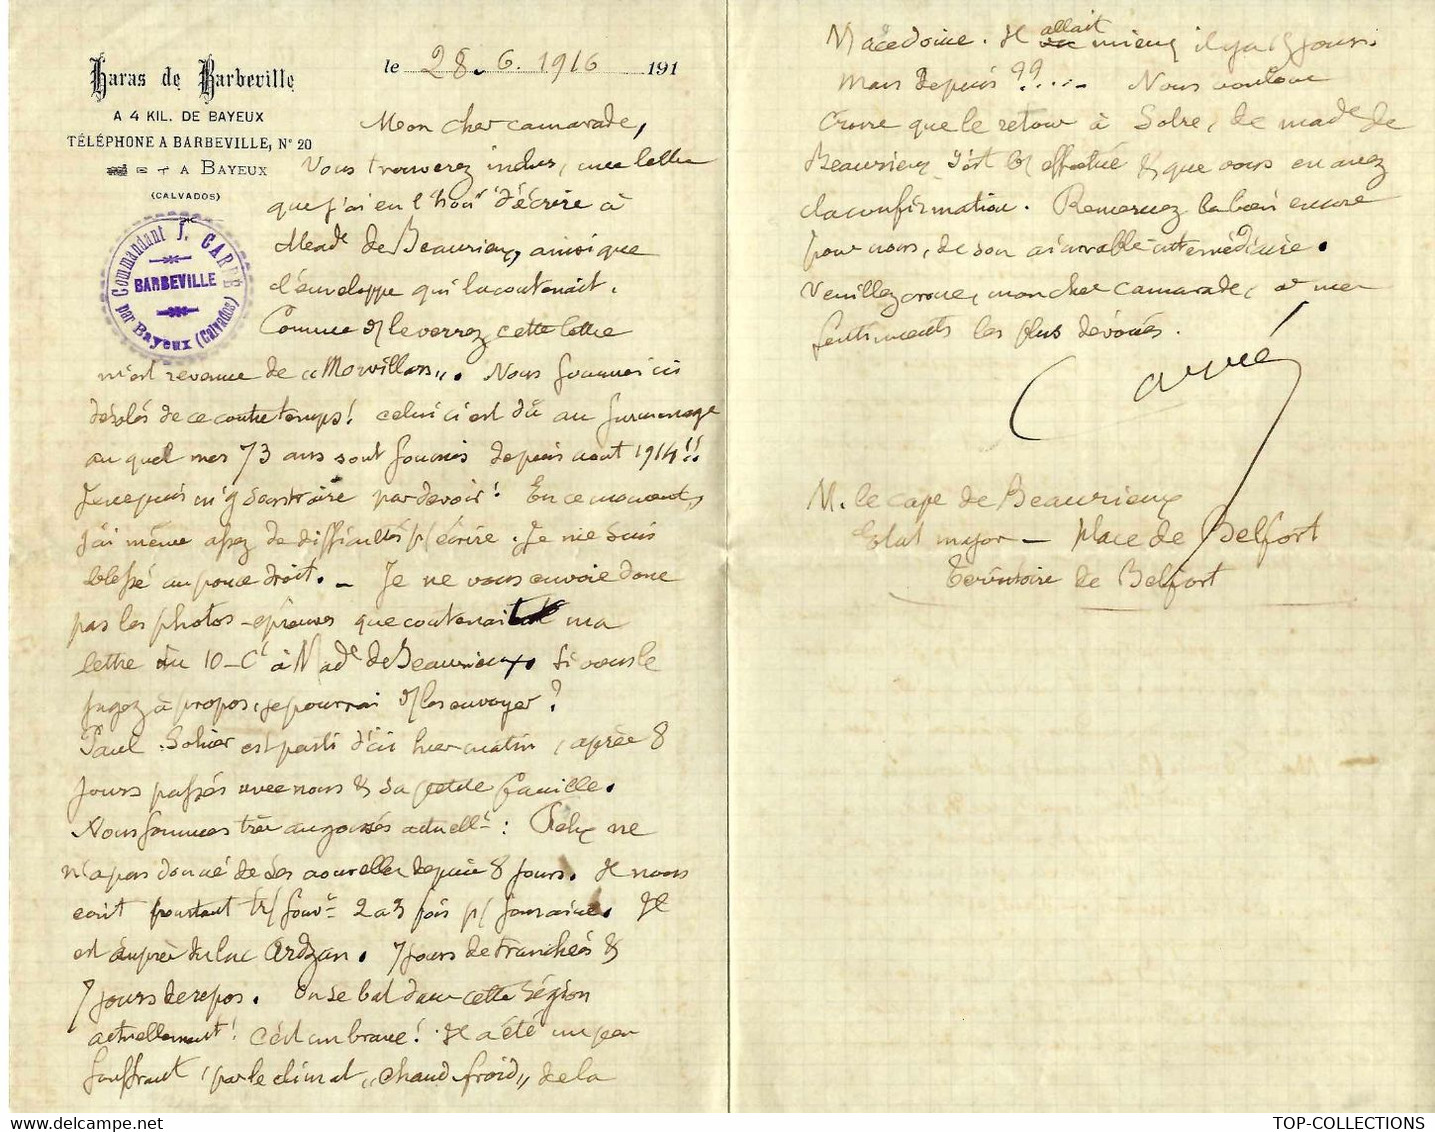 Haras de Barbeville
A 4 KIL. DE BAYEUX
TÉLÉPHONE A BARBEVILLE, N° 20
A BAYEUX
(CALVADOS)
Commandant J. CARRÉ
BARBEVILLE
par Bayeux (Calvados)
le 28. 6. 1916 191
Mon cher camarade,
Vous trouverez inclus, une lettre
que j'ai eu l'honr d'écrire à
Made de Beaurieux, ainsi que
l'enveloppe qui la contenait.
Comme vs le verrez, cette lettre
m'est revenue de "Morvillars". Nous sommes ici
désolés de ce contretemps! celui ci est dû au surmenage
auquel mes 73 ans sont soumis depuis aout 1914!!
Je ne puis m'y soustraire par devoir! En ce moment,
j'ai même assez de difficultés p/ écrire. Je me suis
blessé au pouce droit. — Je ne vous envoie donc
pas les photos-épreuves que contenait ma
lettre du 10-Ct à Made de Beaurieux. Si vous le
jugez à propos, je pourrai vs les envoyer?
Paul Sohier est parti d'ici hier matin, après 8
jours passés avec nous & sa petite famille.
Nous sommes très angoissés actuellt: Félix ne
n'a pas donné de ses nouvelles depuis 8 jours. Il nous
écrit pourtant tr/ souvt 2 à 3 fois p/ semaine. Il
est auprès du lac Ardzan. 7 jours de tranchées &
7 jours de repos. On se bat dans cette région
actuellement! c'est un brave! Il a été un peu
souffrant, par le climat "chaud froid" de la
Macédoine. Il allait mieux il y a 15 jours.
Mais depuis ??.... Nous voulons
croire que le retour à Solre, de made de
Beaurieux s'est bn effectué & que vous en avez
la confirmation. Remerciez la bien encore
pour nous, de son aimable intermédiaire.
Veuillez croire, mon cher camarade, à mes
sentiments les plus dévoués.
Carré
M. le cape de Beaurieux
Etat major — Place de Belfort
Territoire de Belfort
TOP-COLLECTIONS
www.delcampe.net